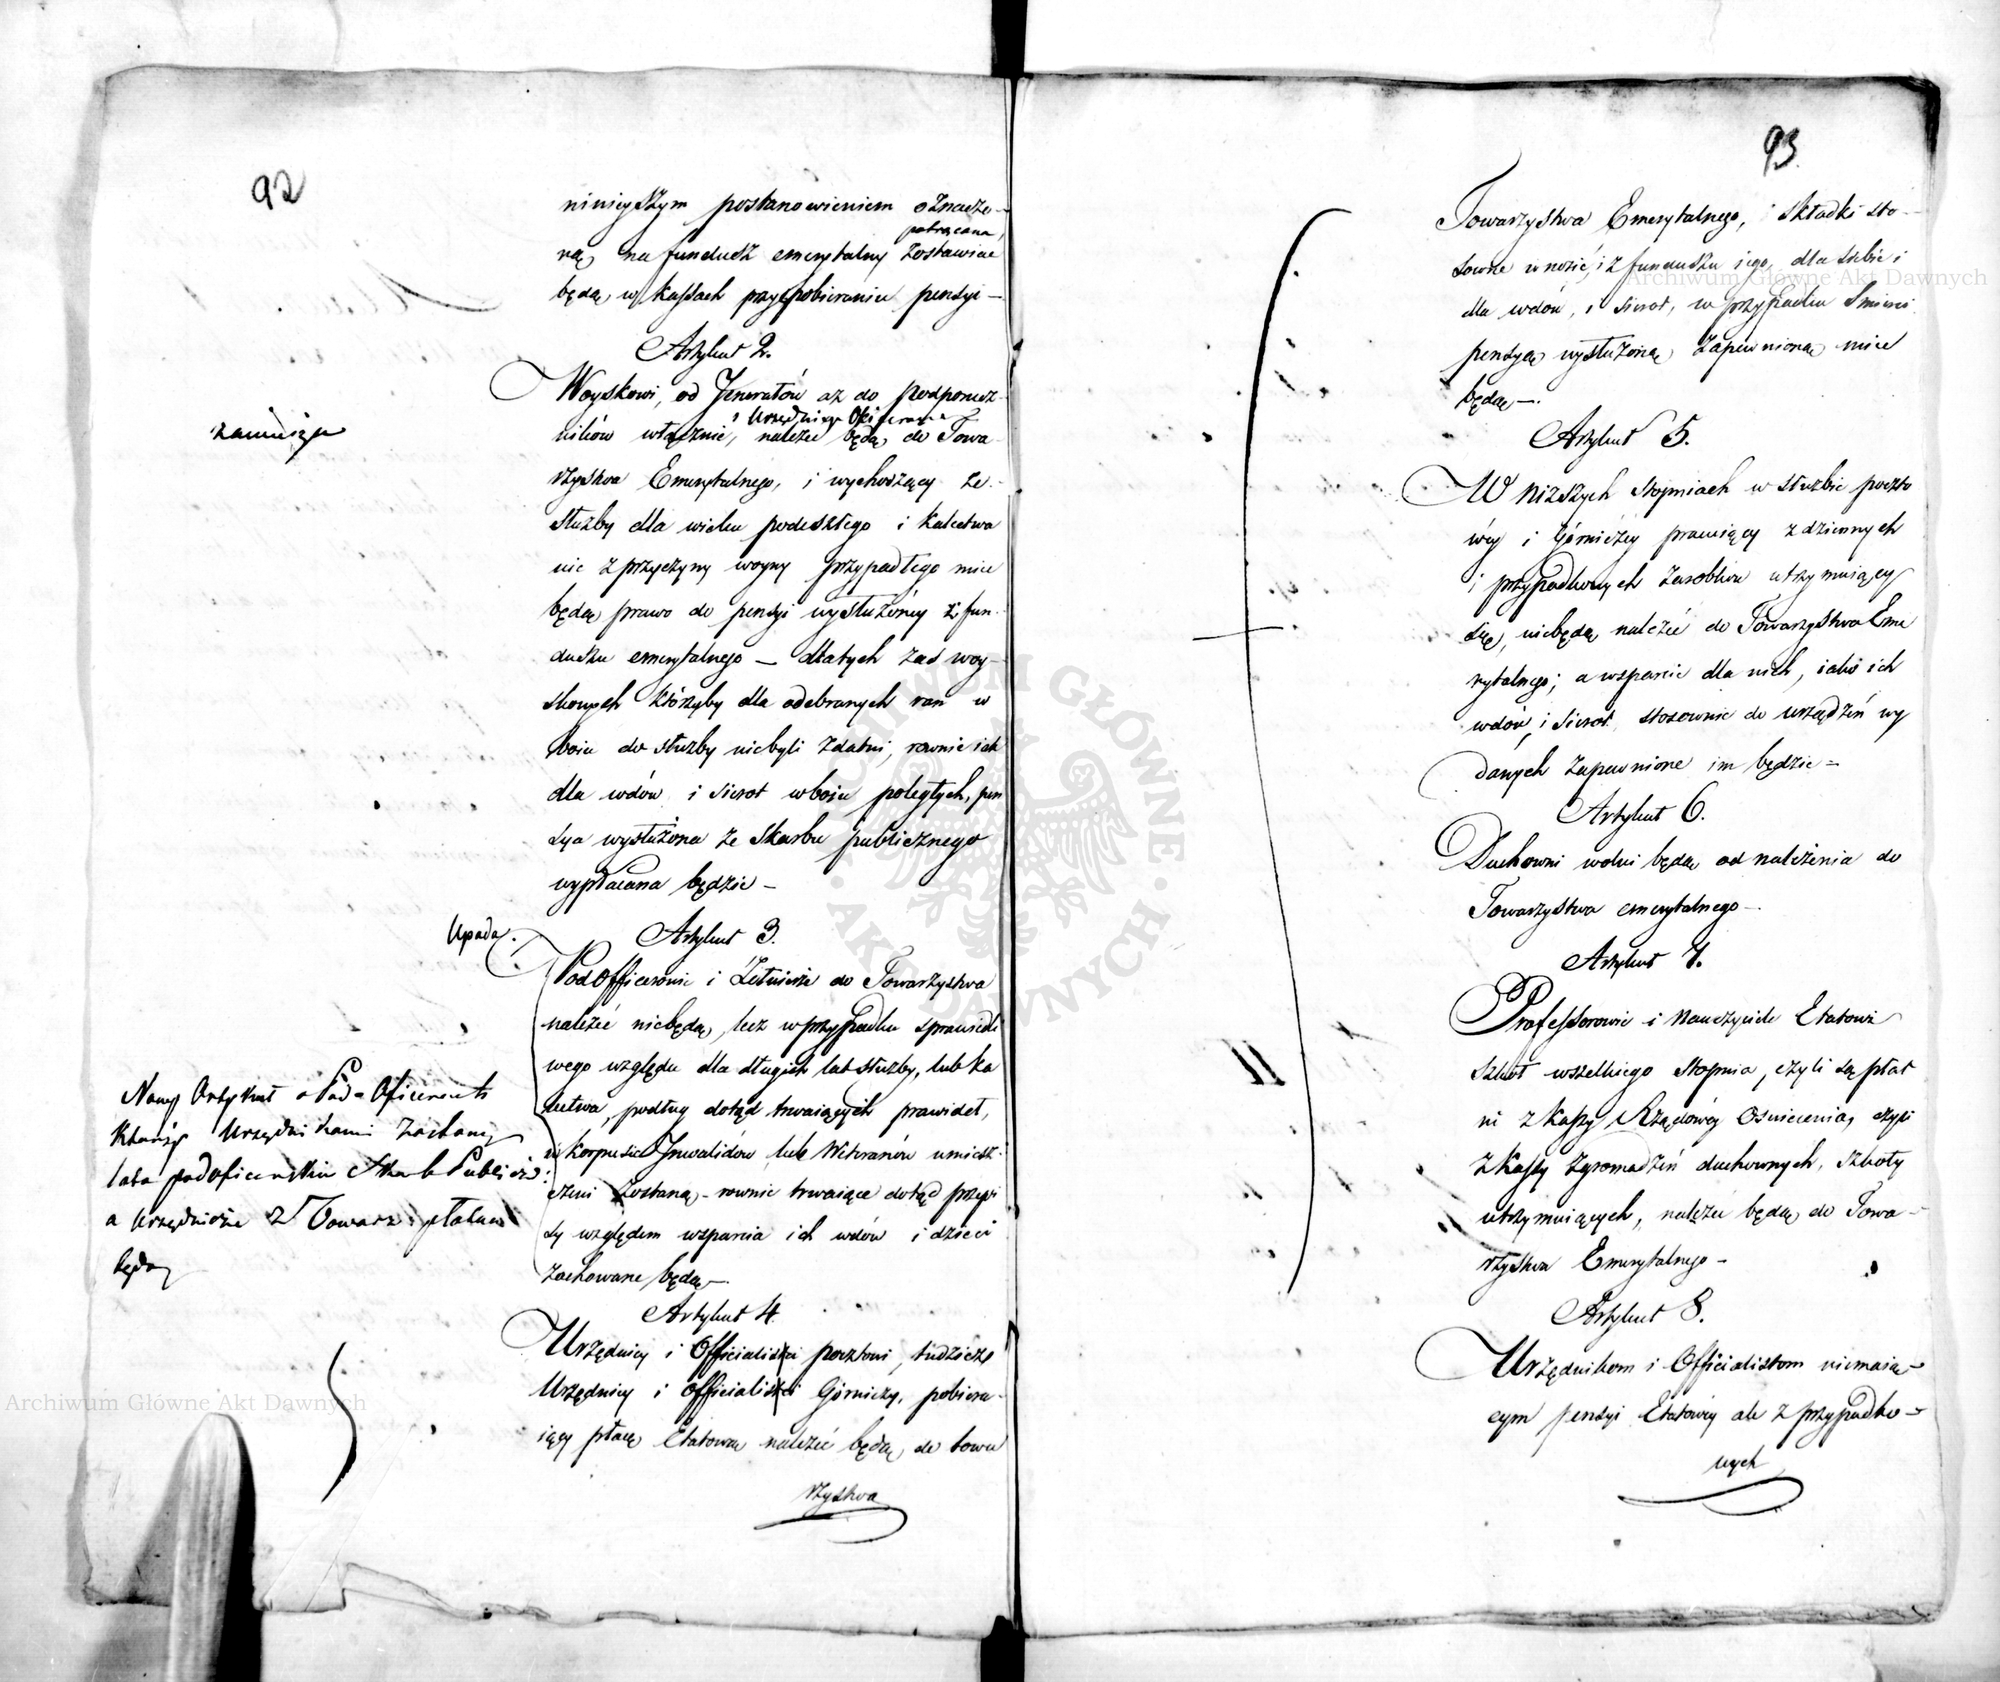 92
ninieyszym postanowieniem oznaczo-
potrącana,
ną na fundusz emerytalny zostawiać
będą w kassach przy pobieraniu pensyi —
Artykuł 2.
Woyskowi, od Jenerałów aż do Podporucz-
i Urzędnicy Oficerowie
ników włącznie, należeć będą do Towa-
rzystwa Emerytalnego, i wychodzący ze
służby dla wieku podeszłego i kalectwa
nie z przyczyny woyny przypadłego mieć
będą prawo do pensyi wysłużoney z fun-
duszu emerytalnego — dla tych zaś woy-
skowych którzyby dla odebranych ran w
boiu do służby niebyli zdatni, rownie iak
dla wdów i sierot w boiu poległych, pen
sya wysłużona ze Skarbu publicznego
wypłacana będzie —
Upada.
Artykuł 3.
Podofficerowie i Żołnierze do Towarzystwa
należeć niebędą, lecz w przypadku sprawiedli
wego względu dla długich lat służby, lub ka
lectwa, podług dotąd trwaiących prawideł,
w korpusie Inwalidów lub Weteranów umiesz-
czeni zostaną — rownie trwaiące dotąd przepi
sy względem wsparcia ich wdów i dzieci
zachowane będą —
Nowy Artykuł o Pod-Oficerach
którzy Urzędnikami zostaną
lata podoficerskie Skarb Publiczny
a Urzędnicze z Towarz: płatne
będą
Artykuł 4.
Urzędnicy i Officialiści pocztowi, tudzież
Urzędnicy i Officialiści Górniczy, pobiera-
iący płacę Etatową należeć będą do towa
rzystwa
93.
Towarzystwa Emerytalnego, i składki sto-
sowne wnosić, i z funduszu iego, dla siebie i
dla wdów, i sierot, w przypadku śmierci
pensyą wysłużoną zapewnioną mieć
będą —.
Artykuł 5.
W niższych stopniach w służbie poczto
wey i Górniczey pracuiący z dziennych
i przypadkowych zarobków utrzymuiący
się, niebędą należeć do Towarzystwa Eme
rytalnego; a wsparcie dla nich, iako ich
wdów, i sierot stosownie do urządzeń wy
danych zapewnione im będzie —
Artykuł 6.
Duchowni wolni będą od należenia do
Towarzystwa emerytalnego —
Artykuł 7.
Professorowie i Nauczyciele Etatowi
Szkół wszelkiego stopnia, czyli są płat
ni z Kassy Rządowey Oświecenia, czyli
z Kassy zgromadzeń duchownych, szkoły
utrzymuiących, należeć będą do Towa-
rzystwa Emerytalnego —
Artykuł 8.
Urzędnikom i Officialistom niemaią-
cym pensyi Etatowey ale z przypadko-
wych
Archiwum Główne Akt Dawnych
Archiwum Główne Akt Dawnych
ARCHIWUM GŁÓWNE AKT DAWNYCH